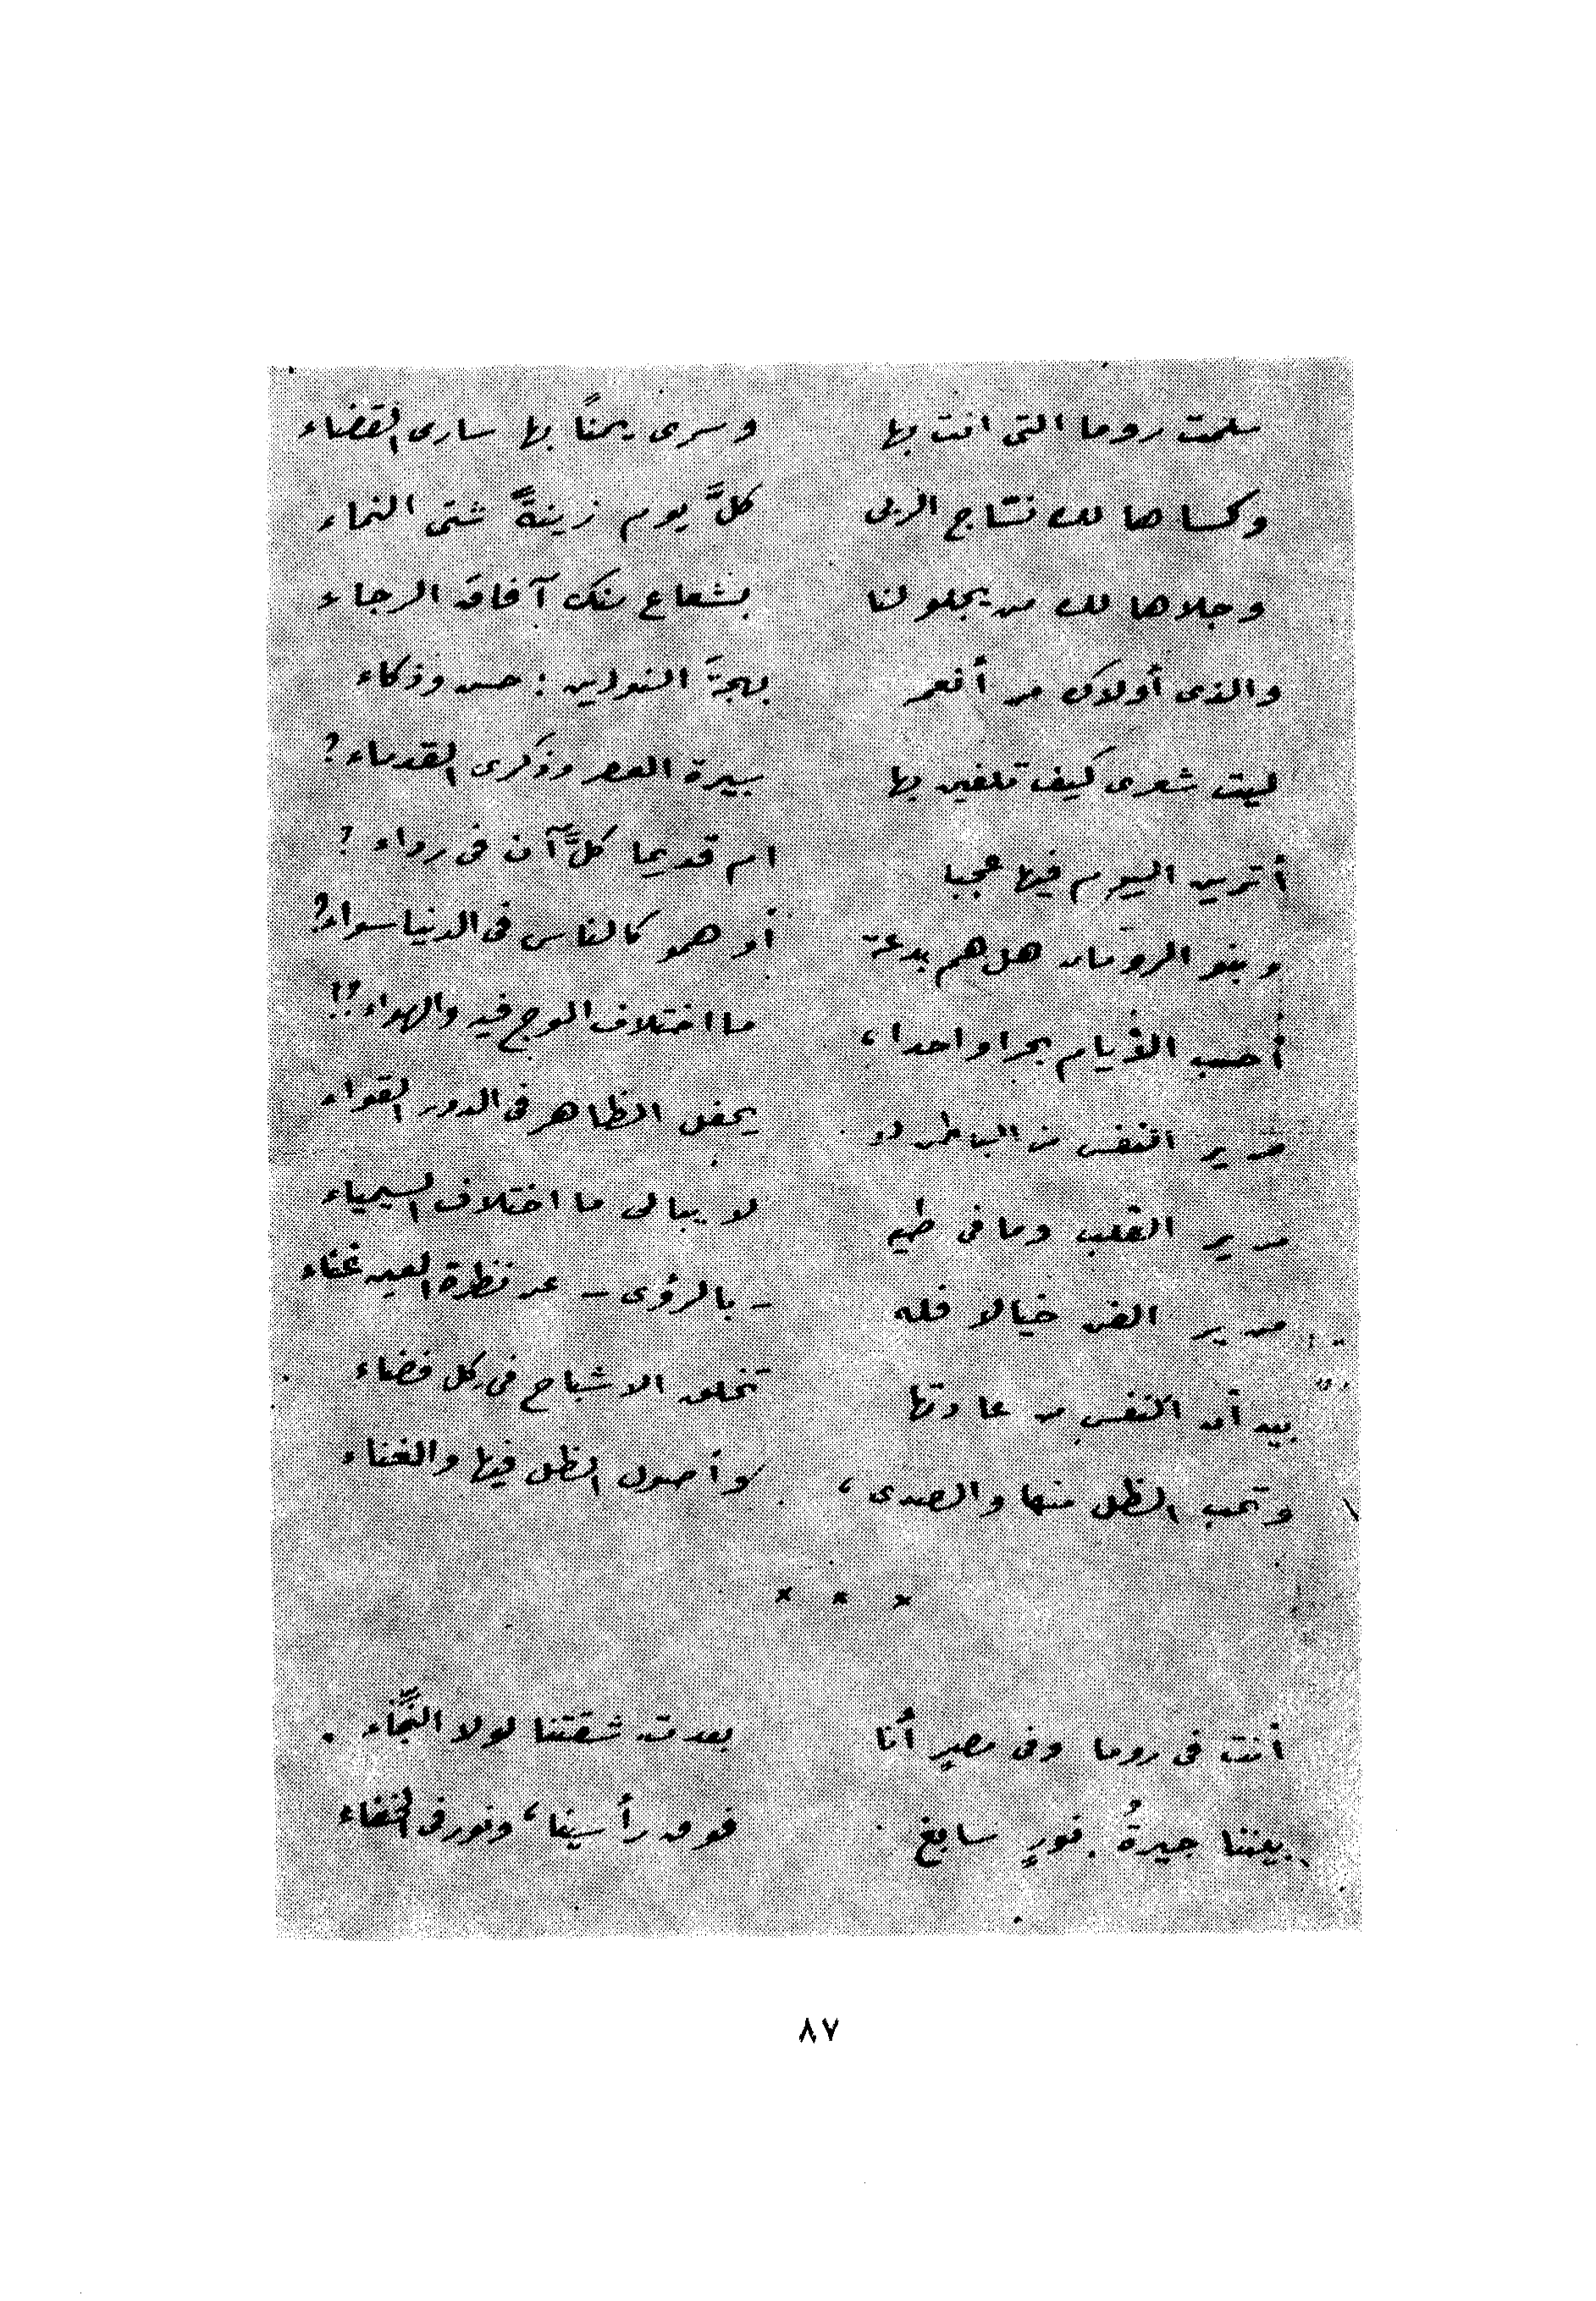 سلمت روما التى انت بها وسرى يمنًا بها سارى القضاء
وكساها لك نسّاج الربى كلَّ يوم زينةً شتى النماء
وجلاها لك من يجلو لنا بشعاع منك آفاق الرجاء
والذى أولاك من أنعم بهجةَ النورين : حسن وذكاء
ليت شعرى كيف تلفين بها سيرة العصر وذكرى القدماء؟
أترين اليوم فيها عجبا ام قديما كلَّ آن فى رداء ؟
وبنو الرومان هل هم بدعة أو همو كالناس فى الدنيا سواء؟
أحسب الأيام بحرا واحدا ، ما اختلاف الموج فيه والهواء؟!
من ير النفس من الباطن لا يحفل الظاهر فى الدور القواء
من ير القلب وما فى طيه لا يبالى ما اختلاف السيمياء
من ير الفن خيالا فله – بالرؤى – عن نظرة العين غناء
بيد أن النفس من عادتها تخلق الاشباح فى كل فضاء
وتحب الظل منها والصدى ، وأصول الظل فيها والغناء
× × ×
أنت فى روما وفى مصرٍ أنا بعدت شقتنا لولا
بيننا جيرةُ نورٍ سابغ فوق رأسينا ، ونور فى الخفاء
٨٧